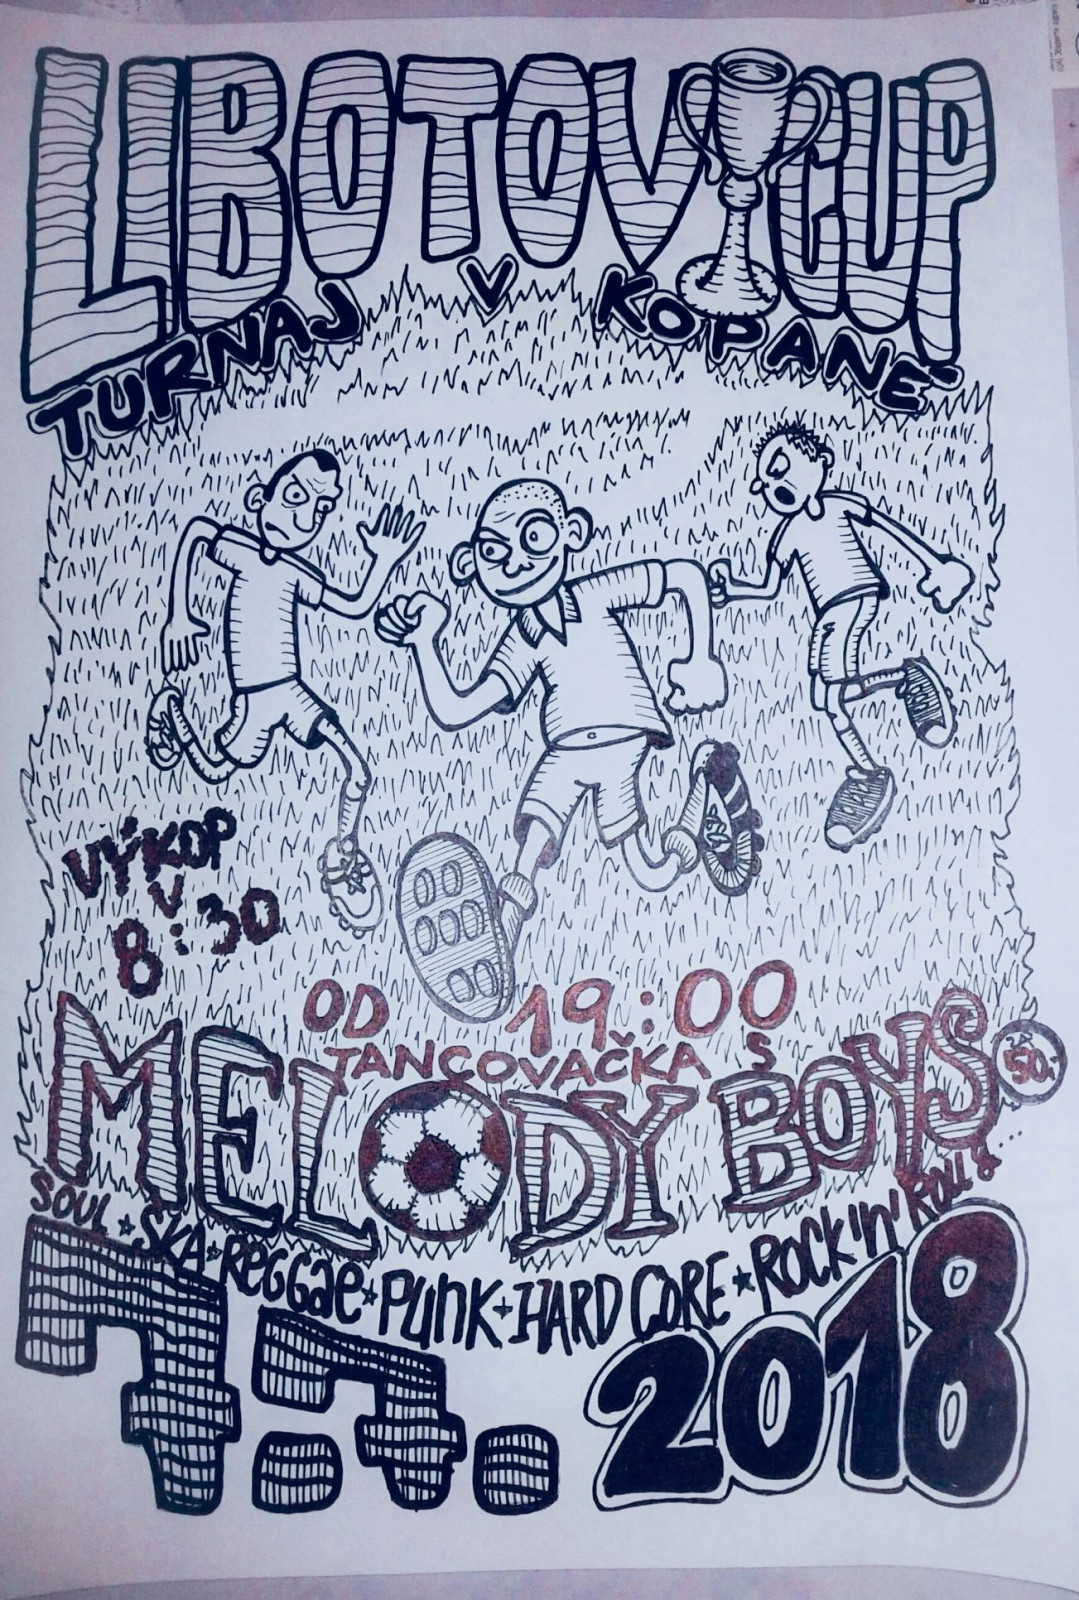 LIBOTOV CUP
TURNAJ V KOPANÉ
VÝKOP
V
8:30
OD 19:00
TANCOVAČKA S
MELODY BOYS
ZA
50,-
SOUL * SKA * REGGAE * PUNK + HARD CORE * ROCK'N'ROLL & ....
7.7. 2018